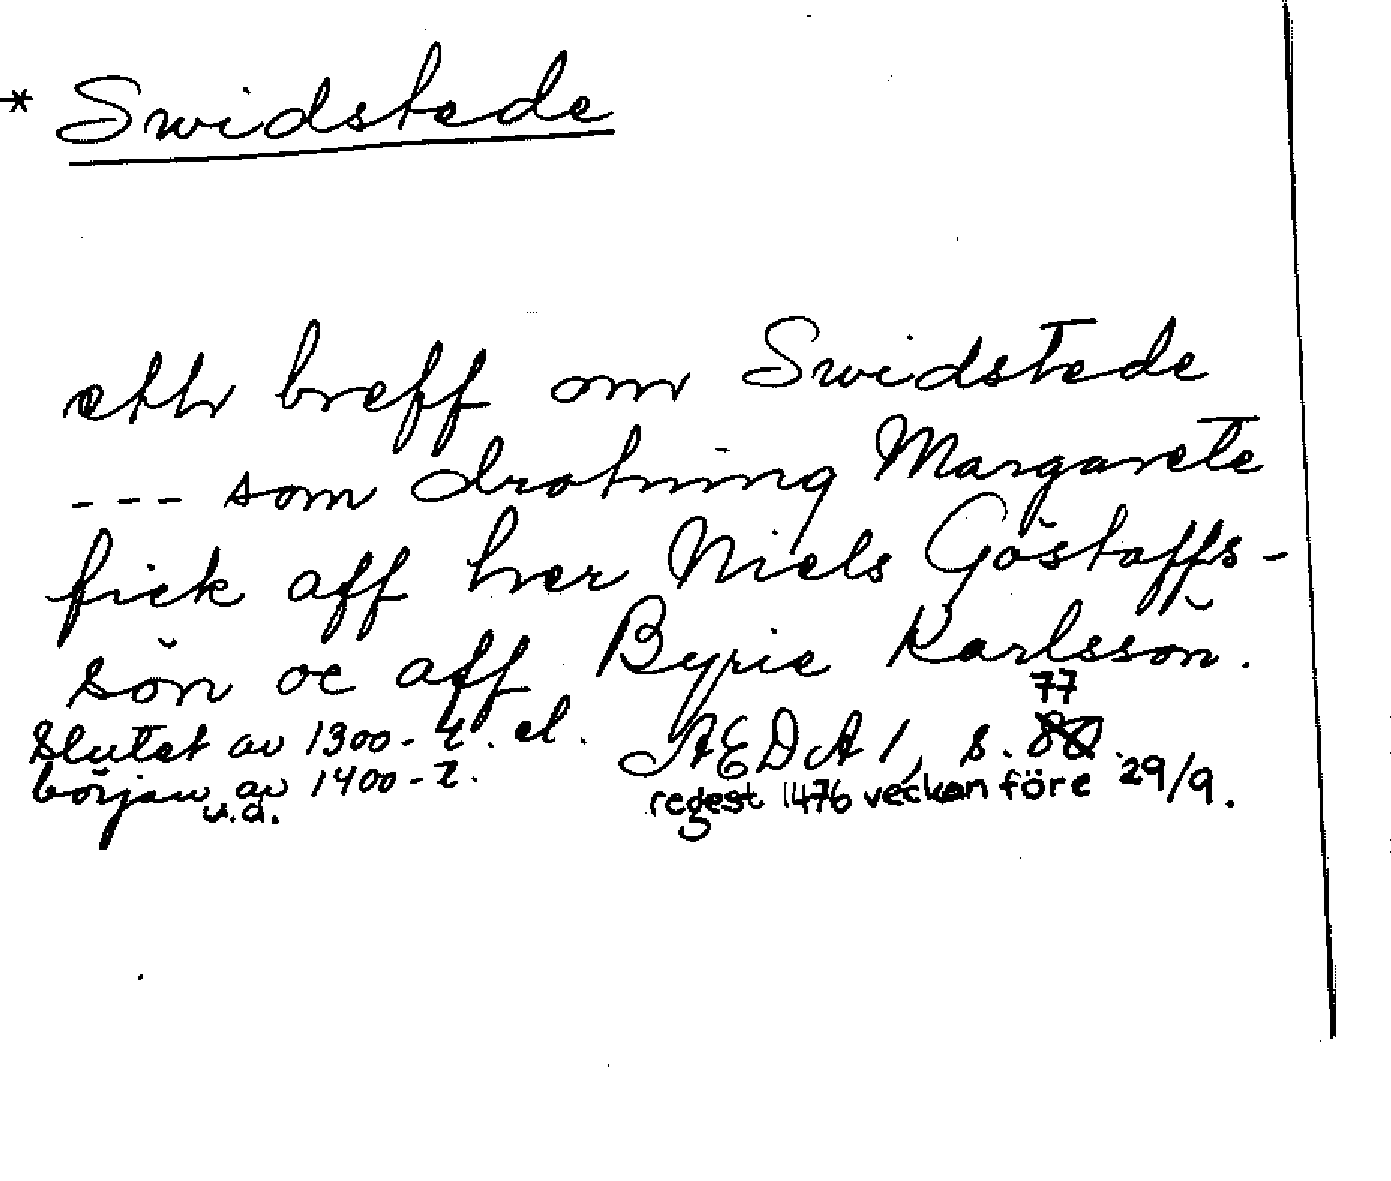 * Swidstede
etth breff om Swidstede
--- som drotning Margarete
fick aff her Niels Göstaffs-
sön oc aff Byrie Karlssön.
Slutet av 1300-t. el.
början av 1400-t.
u.a.
ÆDA 1, s. 77
regest 1476 veckan före 29/9.